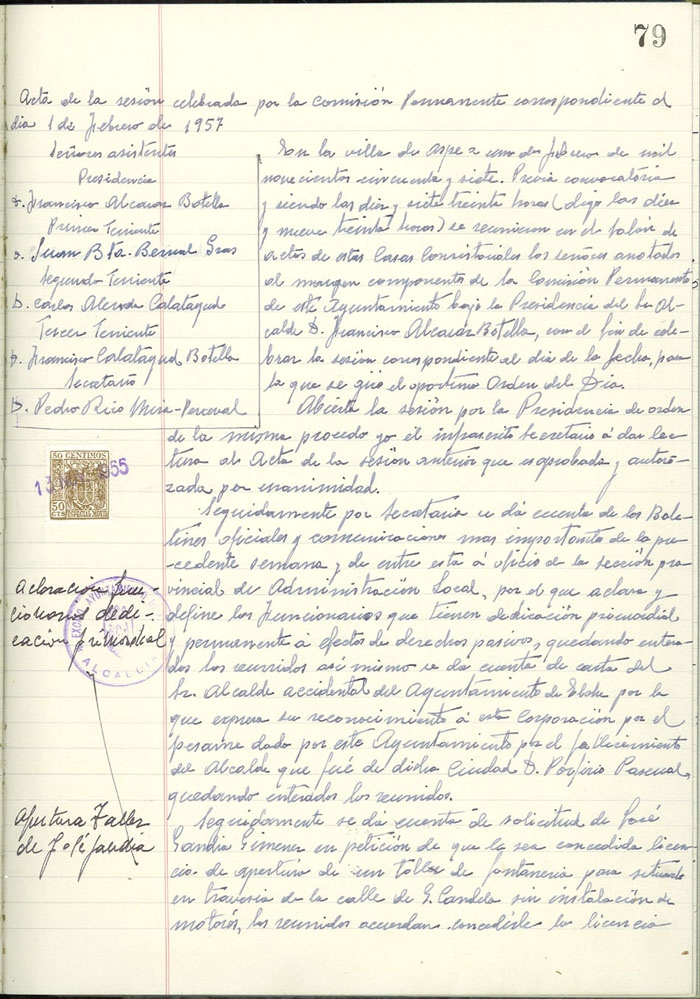 79
Acta de la sesión celebrada por la Comisión Permanente correspondiente al
dia 1 de Febrero de 1957
Señores asistentes
Presidencia
D. Francisco Alcaraz Botella
Primer Teniente
D. Juan Bta. Bernal Gras
Segundo Teniente
D. Carlos Alenda Calatayud
Tercer Teniente
D. Francisco Calatayud Botella
Secretario
D. Pedro Rico Mira-Perceval
En la villa de Aspe a uno de febrero de mil
novecientos cincuenta y siete. Previa convocatoria
y siendo las diez y siete treinta horas (digo las diez
y nueve treinta horas) se reunieron en el Salón de
actos de estas Casas Consistoriales los señores anotados
al margen componentes de la Comisión Permanente
de este Ayuntamiento bajo la Presidencia del Sr. Al-
calde D. Francisco Alcaraz Botella, con el fin de cele-
brar la sesión correspondiente al dia de la fecha, para
la que se fijó el oportuno Orden del Dia.
Abierta la sesión por la Presidencia de orden
de la misma procedo yo el infrascrito Secretario á dar lec-
tura al Acta de la sesión anterior que es aprobada y autori-
zada por unanimidad.
Seguidamente por Secretaria se dá cuenta de los Bole-
tines oficiales y comunicaciones mas importantes de la pre-
cedente semana y de entre esta á oficio de la sección pro-
vincial de Administración Local, por el que aclara y
define los Funcionarios que tienen dedicación primordial
y permanente á efectos de derechos pasivos, quedando entera-
dos los reunidos asi mismo se da cuenta de carta del
Sr. Alcalde accidental del Ayuntamiento de Elche por la
que expresa su reconocimiento á esta Corporación por el
pesame dado por este Ayuntamiento por el fallecimiento
del Alcalde que fué de dicha Ciudad D. Porfirio Pascual,
quedando enterados los reunidos.
Seguidamente se dá cuenta de solicitud de José
Gandia Gimenez en petición de que le sea concedida licen-
cia de apertura de un taller de fontaneria para situarlo
en travesia de la calle de G. Candela sin instalación de
motores, los reunidos acuerdan concederle la licencia
50 CENTIMOS
50
CTS
ESPECIAL MOVIL
1965
Aclaración fun-
cionarios dedi-
cación primordial
EXCMO. AYUNTAMIENTO
ALCALDIA
Apertura Taller
de José Gandia